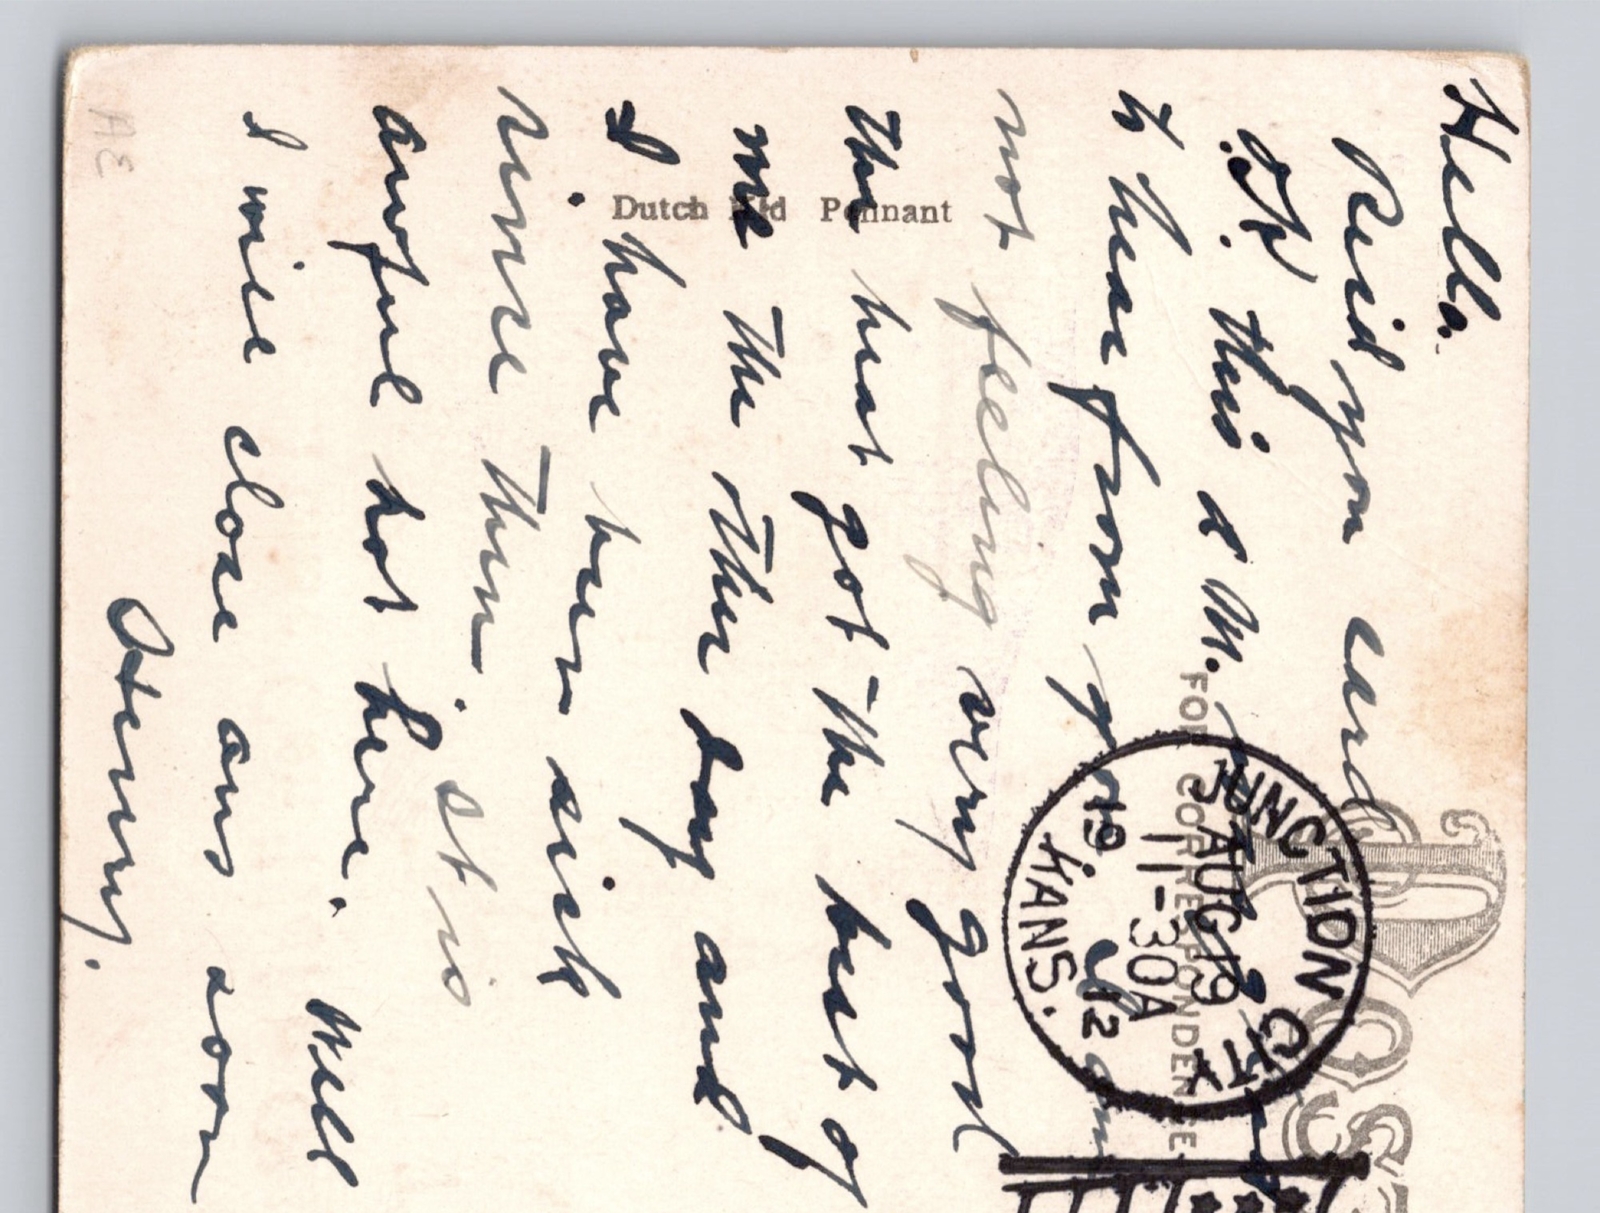 Hello.
Reid you card
O.K. this a.m.
to hear from you
not feeling very good
the heat got the best of
me the other day and
I have been sick
since then. It is
awful hot here. Well
I will close ans soon
Henny.
Dutch Kid Pennant
FOR CORRESPONDENCE
JUNCTION CITY
AUG 19
11-30A
19 12
KANS.
POS
AE